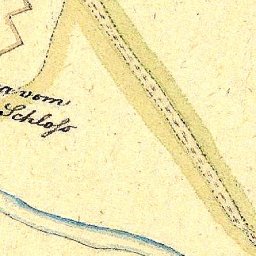 vom
Schloß